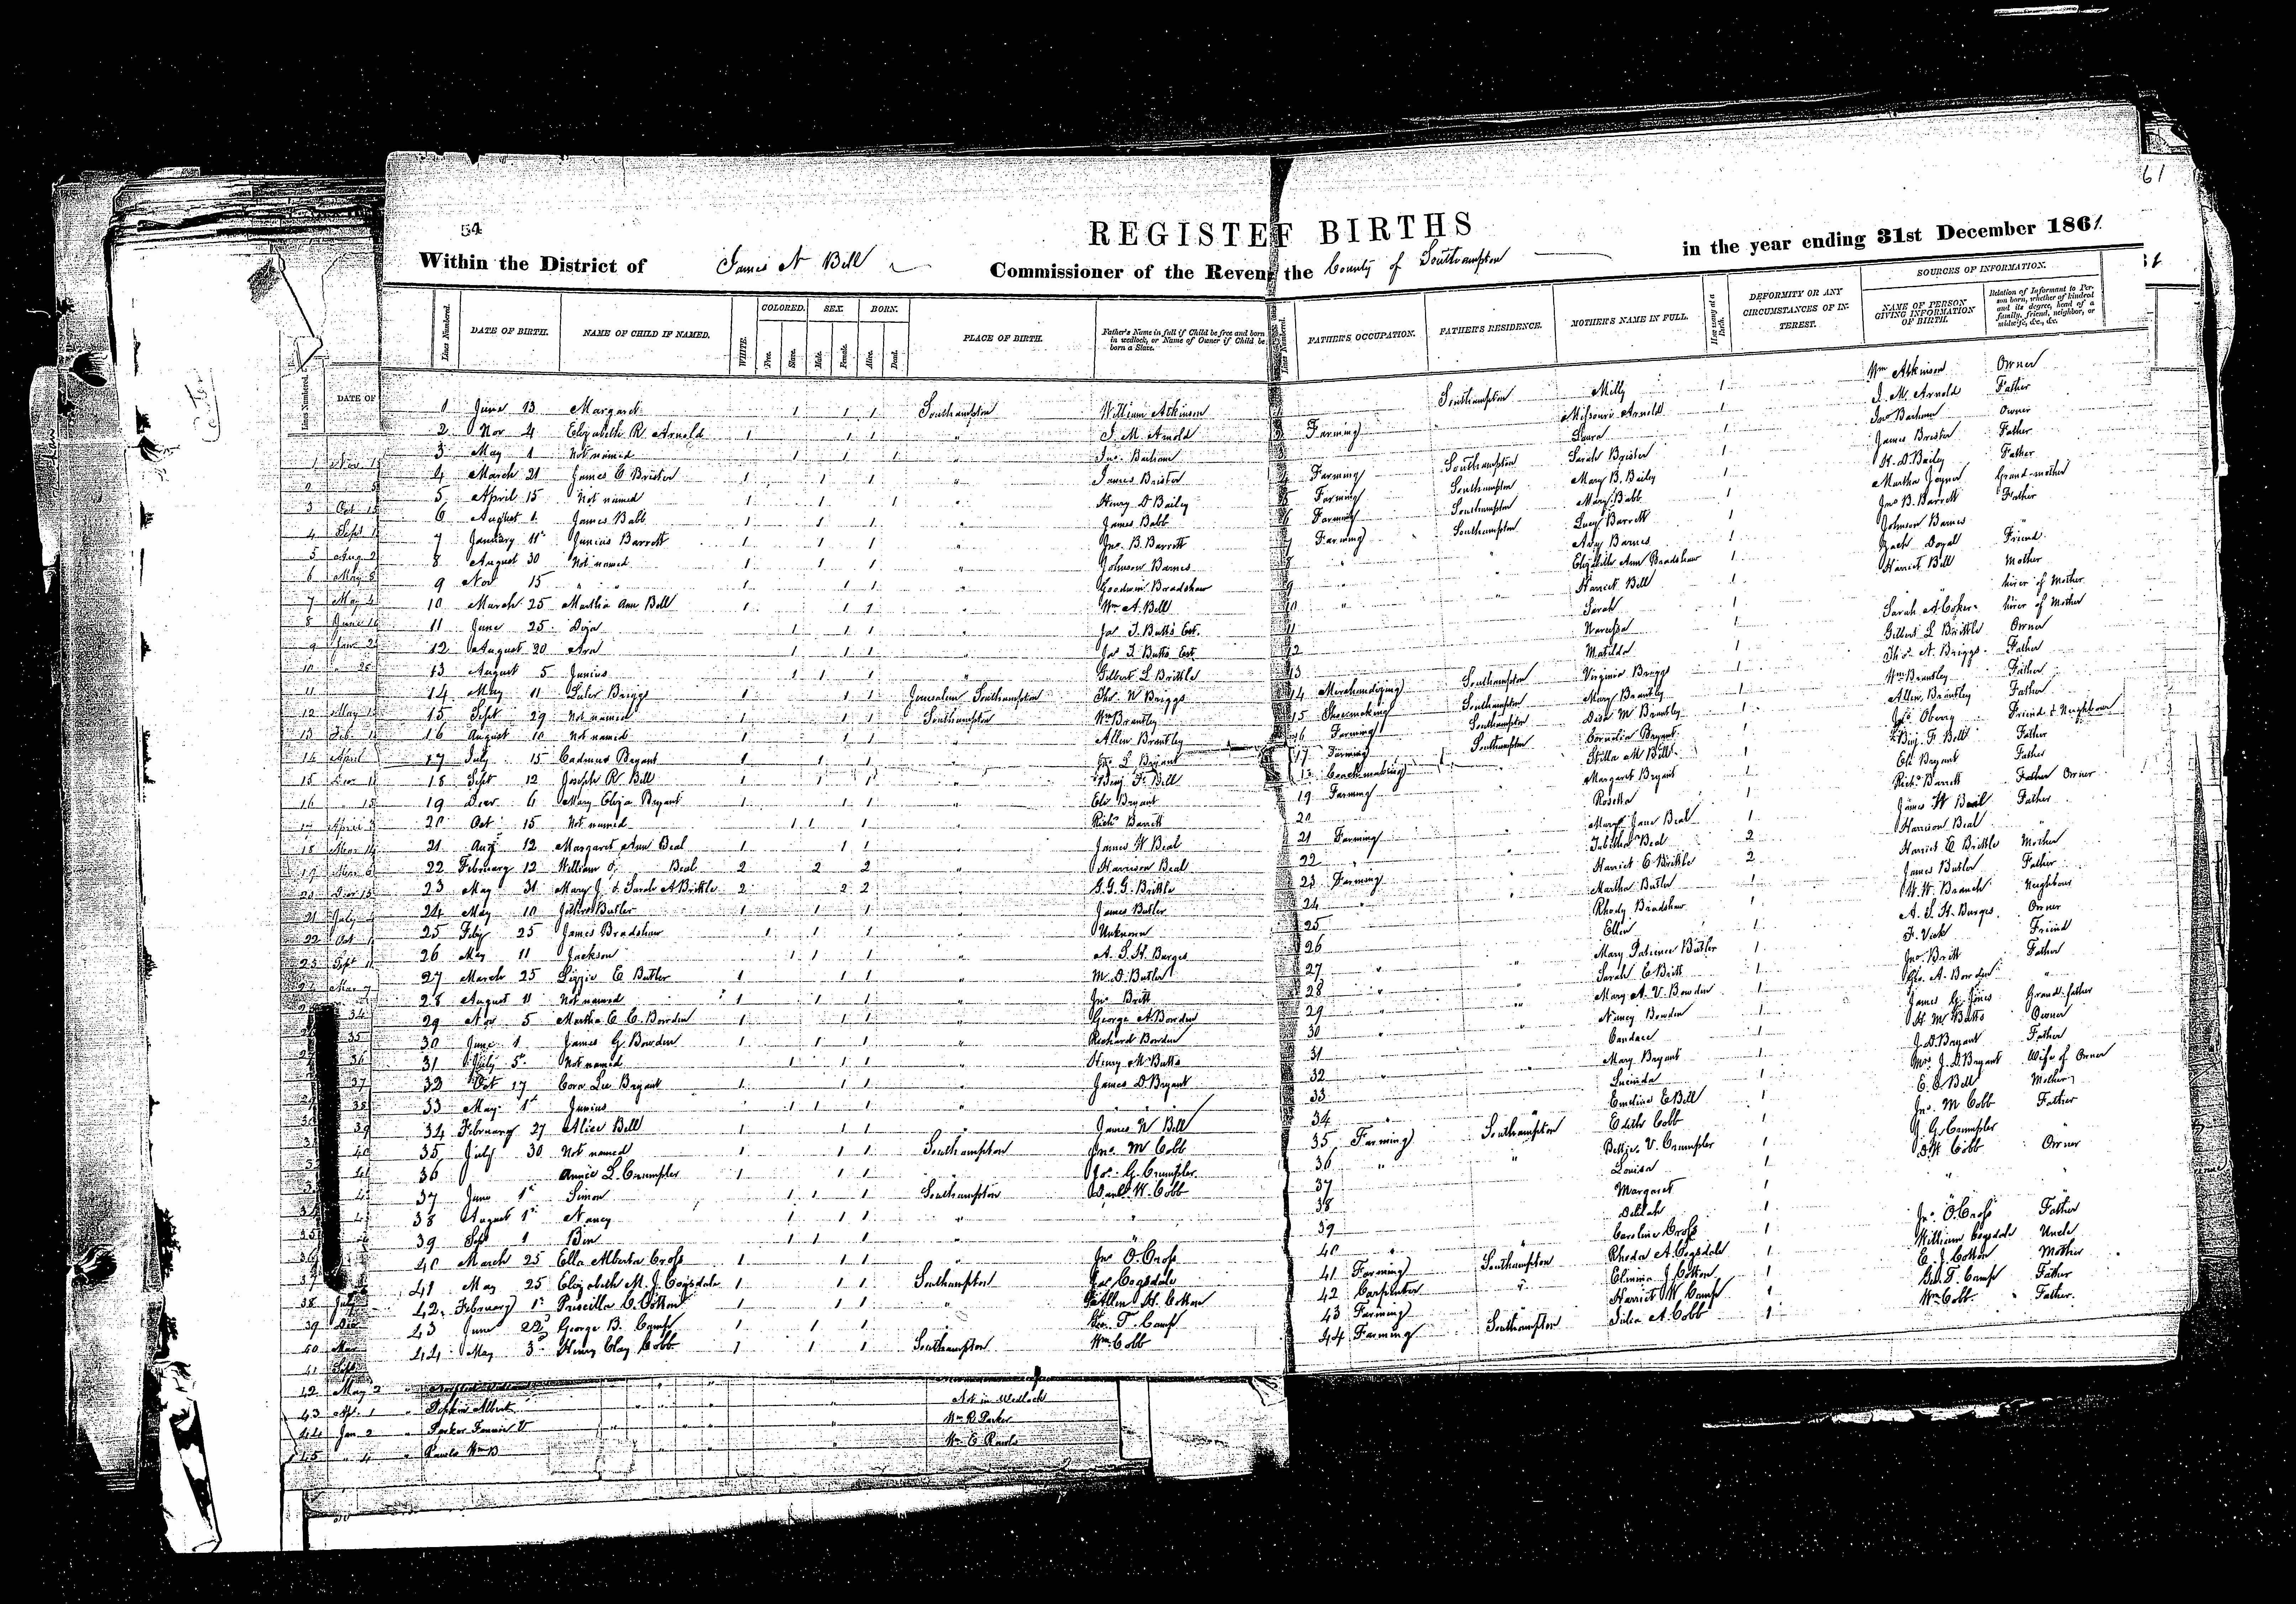 61
54
REGISTEF BIRTHS
Within the District of James N Bell Commissioner of the Reven the County of Southampton in the year ending 31st December 1861.
Lines Numbered. DATE OF BIRTH. NAME OF CHILD IF NAMED. WHITE. COLORED. Free. Slave. SEX. Male. Female. BORN. Alive. Dead. PLACE OF BIRTH. Father's Name in full if Child be free and born in wedlock, or Name of Owner if Child be born a Slave. Lines Numbered. FATHER'S OCCUPATION. FATHER'S RESIDENCE. MOTHER'S NAME IN FULL. How many at a Birth. DEFORMITY OR ANY CIRCUMSTANCES OF INTEREST. SOURCES OF INFORMATION. NAME OF PERSON GIVING INFORMATION OF BIRTH. Relation of Informant to Person born, whether of kindred and its degree, head of a family, friend, neighbor, or midwife, &c., &c.
1 June 13 Margaret 1 1 1 Southampton William Atkinson Southampton Milly 1 Wm Atkinson Owner
2 Nov 4 Elizabeth R. Arnold 1 1 1 " J. M. Arnold 2 Farming Missouri Arnold 1 J. M. Arnold Father
3 May 1 Not named 1 1 1 " Jno. Barham Laura 1 Jno Barham Owner
4 March 21 James E Brister 1 1 1 " James Brister 4 Farming Southampton Sarah Brister 1 James Brister Father
5 April 15 Not named 1 1 1 " Henry D Bailey 5 Farming Southampton Mary B. Bailey 1 H. D. Bailey Father
6 August 1. James Babb 1 1 1 " James Babb 6 Farming Southampton Mary Babb 1 Martha Joyner Grand-mother
7 January 11 Junius Barrett 1 1 1 " Jno. B. Barrett 7 Farming Southampton Lucy Barrett 1 Jno B. Barrett Father
8 August 30 Not named 1 1 1 " Johnson Barnes 8 " " Avy Barnes 1 Johnson Barnes "
9 Nov 15 " " 1 1 1 " Goodwin Bradshaw 9 " " Elizabeth Ann Bradshaw 1 Zach Doyal Friend
10 March 25 Martha Ann Bell 1 1 1 " Wm A. Bell 10 " " Harriet Bell 1 Harriet Bell Mother
11 June 25 1 1 1 " Jas J. Butts Est. 11 Sarah 1 hirer of Mother
12 August 30 1 1 1 " Jas J. Butts Est. 12 Narcissa 1 Sarah A. Coker hirer of Mother
13 August 5 Junius 1 1 1 " Gilbert L Brittle 13 Matilda 1 Gilbert L Brittle Owner
14 May 11 Briggs 1 1 1 Jerusalem Southampton Tho. N Briggs 14 Merchandizing Southampton Virginia Briggs 1 Thos. N. Briggs Father
15 Sept 29 Not named 1 1 1 Southampton Wm Brantley 15 Shoemaking Southampton Mary Brantley 1 Wm Brantley Father
16 August 10 Not named 1 1 1 " Allen Brantley 16 Farming Southampton M Brantley 1 Allen Brantley Father
17 July 15 Cadmus Bryant 1 1 1 " L Bryant 17 Farming Southampton Cornelia Bryant 1 Oberry Friend & Neighbour
18 Sept 12 Joseph R Bell 1 1 1 " Benj. F. Bell 18 Coachmaking M Bell 1 Benj. F. Bell Father
19 Decr 6 Mary Eliza Bryant 1 1 1 " Eli Bryant 19 Farming Margaret Bryant 1 Eli Bryant Father
20 Oct 15 Not named 1 1 1 " Richd Barrett 20 Rosetta 1 Richd Barrett Father Owner
21 Aug 12 Margaret Ann Beal 1 1 1 " James W Beal 21 Farming " Mary Jane Beal 1 James W Beal Father
22 February 12 William Beal 2 2 2 " Harrison Beal 22 " " Tabitha Beal 2 Harrison Beal "
23 May 31 Mary J. & Sarah A Brittle 2 2 2 " G. G. G. Brittle 23 Farming " Harriet E Brittle 2 Harriet E Brittle Mother
24 May 10 Butler 1 1 1 " James Butler 24 " " Martha Butler 1 James Butler Father
25 Feby 25 James Bradshaw 1 1 1 " Unknown 25 Rhody Bradshaw 1 W. W. Branch Neighbour
26 May 11 Jackson 1 1 1 " A. S. H. Burges 26 Ellen 1 A. S. H. Burges Owner
27 March 25 Lizzie E Butler 1 1 1 " M. D. Butler 27 " " Mary Patience Butler 1 J. Vick Friend
28 August 11 Not named 1 1 1 " Jno Britt 28 " " Sarah E Britt 1 Jno. Britt Father
29 Nov 5 Martha E. C. Bowden 1 1 1 " George A. Bowden 29 " " Mary A. V. Bowden 1 Geo. A. Bowden "
30 June 1 James G. Bowden 1 1 1 " Richard Bowden 30 " " Nancy Bowden 1 James G. Jones Grand-father
31 July 5 Not named 1 1 1 " Henry M Butts 31 Candace 1 H. M. Butts Owner
32 Oct 17 Cora Lee Bryant 1 1 1 " James D. Bryant 32 " " Mary Bryant 1 J. D. Bryant Father
33 May 1st Junius 1 1 1 " " 33 Lucinda 1 Mrs. J. D. Bryant Wife of Owner
34 February 27 Alice Bell 1 1 1 " James N Bell 34 " " Emeline E Bell 1 E. E. Bell Mother
35 July 30 Not named 1 1 1 Southampton Jno. M Cobb 35 Farming Southampton Edith Cobb 1 Jno. M Cobb Father
36 Annie L. Crumpler 1 1 1 " Jos. G. Crumpler 36 " " Bettie V. Crumpler 1 J. G. Crumpler "
37 June 1st Simon 1 1 1 Southampton Danl. W. Cobb 37 Louisa 1 D. W Cobb Owner
38 August 1st Nancy 1 1 1 " " 38 Margaret 1 " "
39 Sept 1 Ben 1 1 1 " " 39 Delilah 1 " "
40 March 25 Ella Alberta Cross 1 1 1 " Jno O. Cross 40 " " Caroline Cross 1 Jno. O. Cross Father
41 May 25 Elizabeth M. J. Cogsdale 1 1 1 Southampton Jas Cogsdale 41 Farming Southampton Rhoda A. Cogsdale 1 William Cogsdale Uncle
42 February 1st Priscilla C. Cotton 1 1 1 " Allen H. Cotton 42 Carpenter " J Cotton 1 E. J. Cotton Mother
43 June 22d George B. Camp 1 1 1 " Geo. T. Camp 43 Farming Harriet W Camp 1 Geo. T. Camp Father
44 May 3d Henry Clay Cobb 1 1 1 Southampton Wm. Cobb 44 Farming Southampton Julia A. Cobb 1 Wm Cobb Father.
42 May 2
43 1 Albert Not in Wedlock
44 Jan 2 Parker Fannie V Wm R. Parker
45 " 4 Rawls Wm B Wm E Rawls